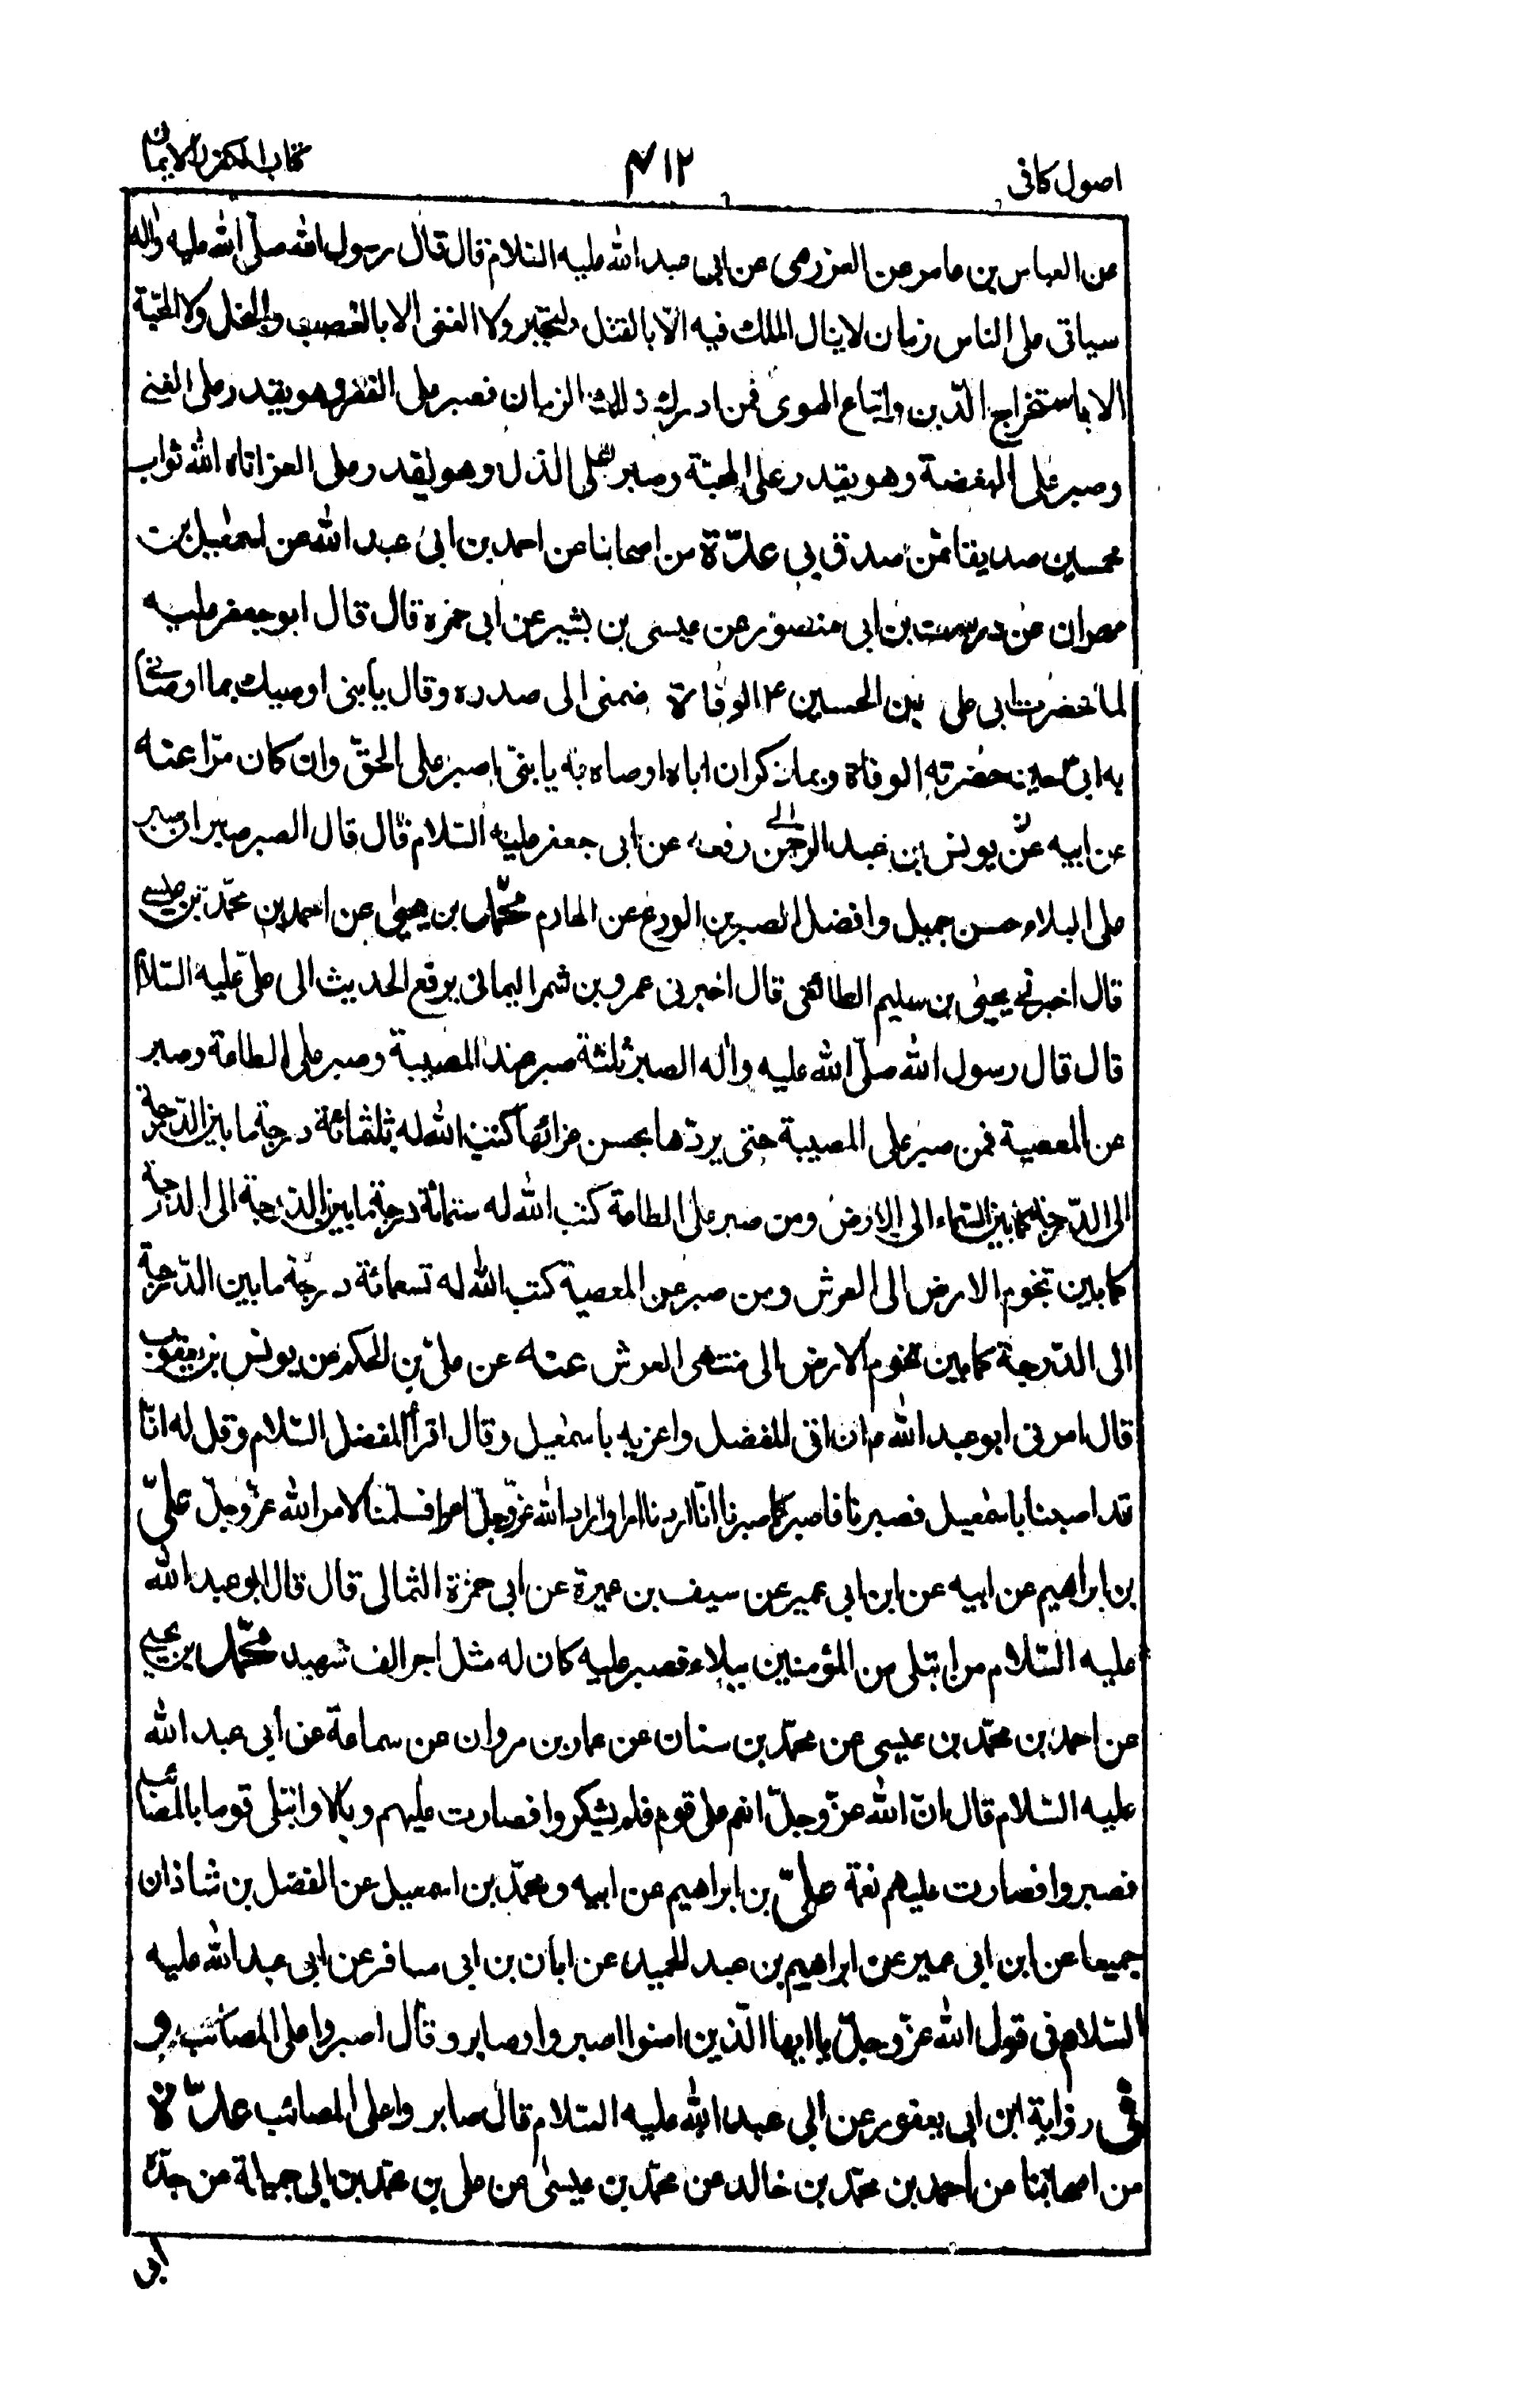 اصول كافى
٤١٢
كتاب الكفر والايمان
عن العباس بن عامر عن العزرمى عن ابى عبد الله عليه السلام قال قال رسول الله صلّى الله عليه واله
سياتى على الناس زمان لا ينال الملك فيه الّا بالقتل والتجبر ولا الغنى الا بالغصب والبخل ولا المحبّة
الا باستخراج الدّين واتباع الهوى فمن ادرك ذلك الزمان فصبر على الفقر وهو يقدر على الغنى
وصبر على البغضة وهو يقدر على المحبّة وصبر على الذل وهو يقدر على العز اتاه الله ثواب
خمسين صديقا ممّن صدق بى عدّة من اصحابنا عن احمد بن ابى عبد الله عن اسمعيل بن
مهران عن درست بن ابى منصور عن عيسى بن بشير عن ابى حمزه قال قال ابو جعفر عليه
لما حضرت ابى على بن الحسين ع الوفاة ضمنى الى صدره وقال يا بنى اوصيك بما اوصانى
به ابى حين حضرته الوفاة وبما ذكر ان اباه اوصاه به يا بنىّ اصبر على الحقّ وان كان مرّا عنه
عن ابيه عن يونس بن عبد الرحمن رفعه عن ابى جعفر عليه السّلام قال قال الصبر صبران صبر
على البلاء حسن جميل وافضل الصبرين الورع عن المحارم محمّد بن يحيى عن احمد بن محمّد بن عيسى
قال اخبرنى يحيى بن سليم الطائفى قال اخبرنى عمرو بن شمر اليمانى يرفع الحديث الى علىّ عليه السّلام
قال قال رسول الله صلّى الله عليه واله الصبر ثلثة صبر عند المصيبة وصبر على الطاعة وصبر
عن المعصية فمن صبر على المصيبة حتى يردّها بحسن عزائها كتب الله له ثلثمائة درجة ما بين الدّرجة
الى الدّرجة كما بين السّماء الى الارض ومن صبر على الطاعة كتب الله له ستمائة درجة ما بين الدّرجة الى الدرجة
كما بين تخوم الارض الى العرش ومن صبر عن المعصية كتب الله له تسعمائة درجة ما بين الدّرجة
الى الدّرجة كما بين تخوم الارض الى منتهى العرش عنه عن علىّ بن الحكم عن يونس بن يعقوب
قال امرنى ابو عبد الله ع ان اتى المفضل واعزيه باسمعيل وقال اقرأ المفضل السّلام وقل له انّا
قد اصبنا باسمعيل فصبرنا فاصبر كما صبرنا انّا اردنا امرا واراد الله عزّ وجلّ امرا فسلّمنا لامر الله عزّ وجلّ علىّ
بن ابراهيم عن ابيه عن ابن ابى عمير عن سيف بن عميرة عن ابى حمزة الثمالى قال قال ابو عبد الله
عليه السّلام من ابتلى من المؤمنين ببلاء فصبر عليه كان له مثل اجر الف شهيد محمّد بن يحيى
عن احمد بن محمّد بن عيسى عن محمّد بن سنان عن عمار بن مروان عن سماعة عن ابى عبد الله
عليه السّلام قال انّ الله عزّ وجلّ انعم على قوم فلم يشكروا فصارت عليهم وبالا وابتلى قوما بالمصائب
فصبروا فصارت عليهم نعمة علىّ بن ابراهيم عن ابيه ومحمّد بن اسمعيل عن الفضل بن شاذان
جميعا عن ابن ابى عمير عن ابراهيم بن عبد الحميد عن ابان بن ابى مسافر عن ابى عبد الله عليه
السّلام فى قول الله عزّ وجلّ يا ايها الّذين امنوا اصبروا وصابروا قال اصبروا على المصائب و
فى رواية ابن ابى يعفور عن ابى عبد الله عليه السّلام قال صابروا على المصائب عدّة
من اصحابنا عن احمد بن محمّد بن خالد عن محمّد بن عيسى عن على بن محمّد بن ابى جميلة عن جدّه
ابى